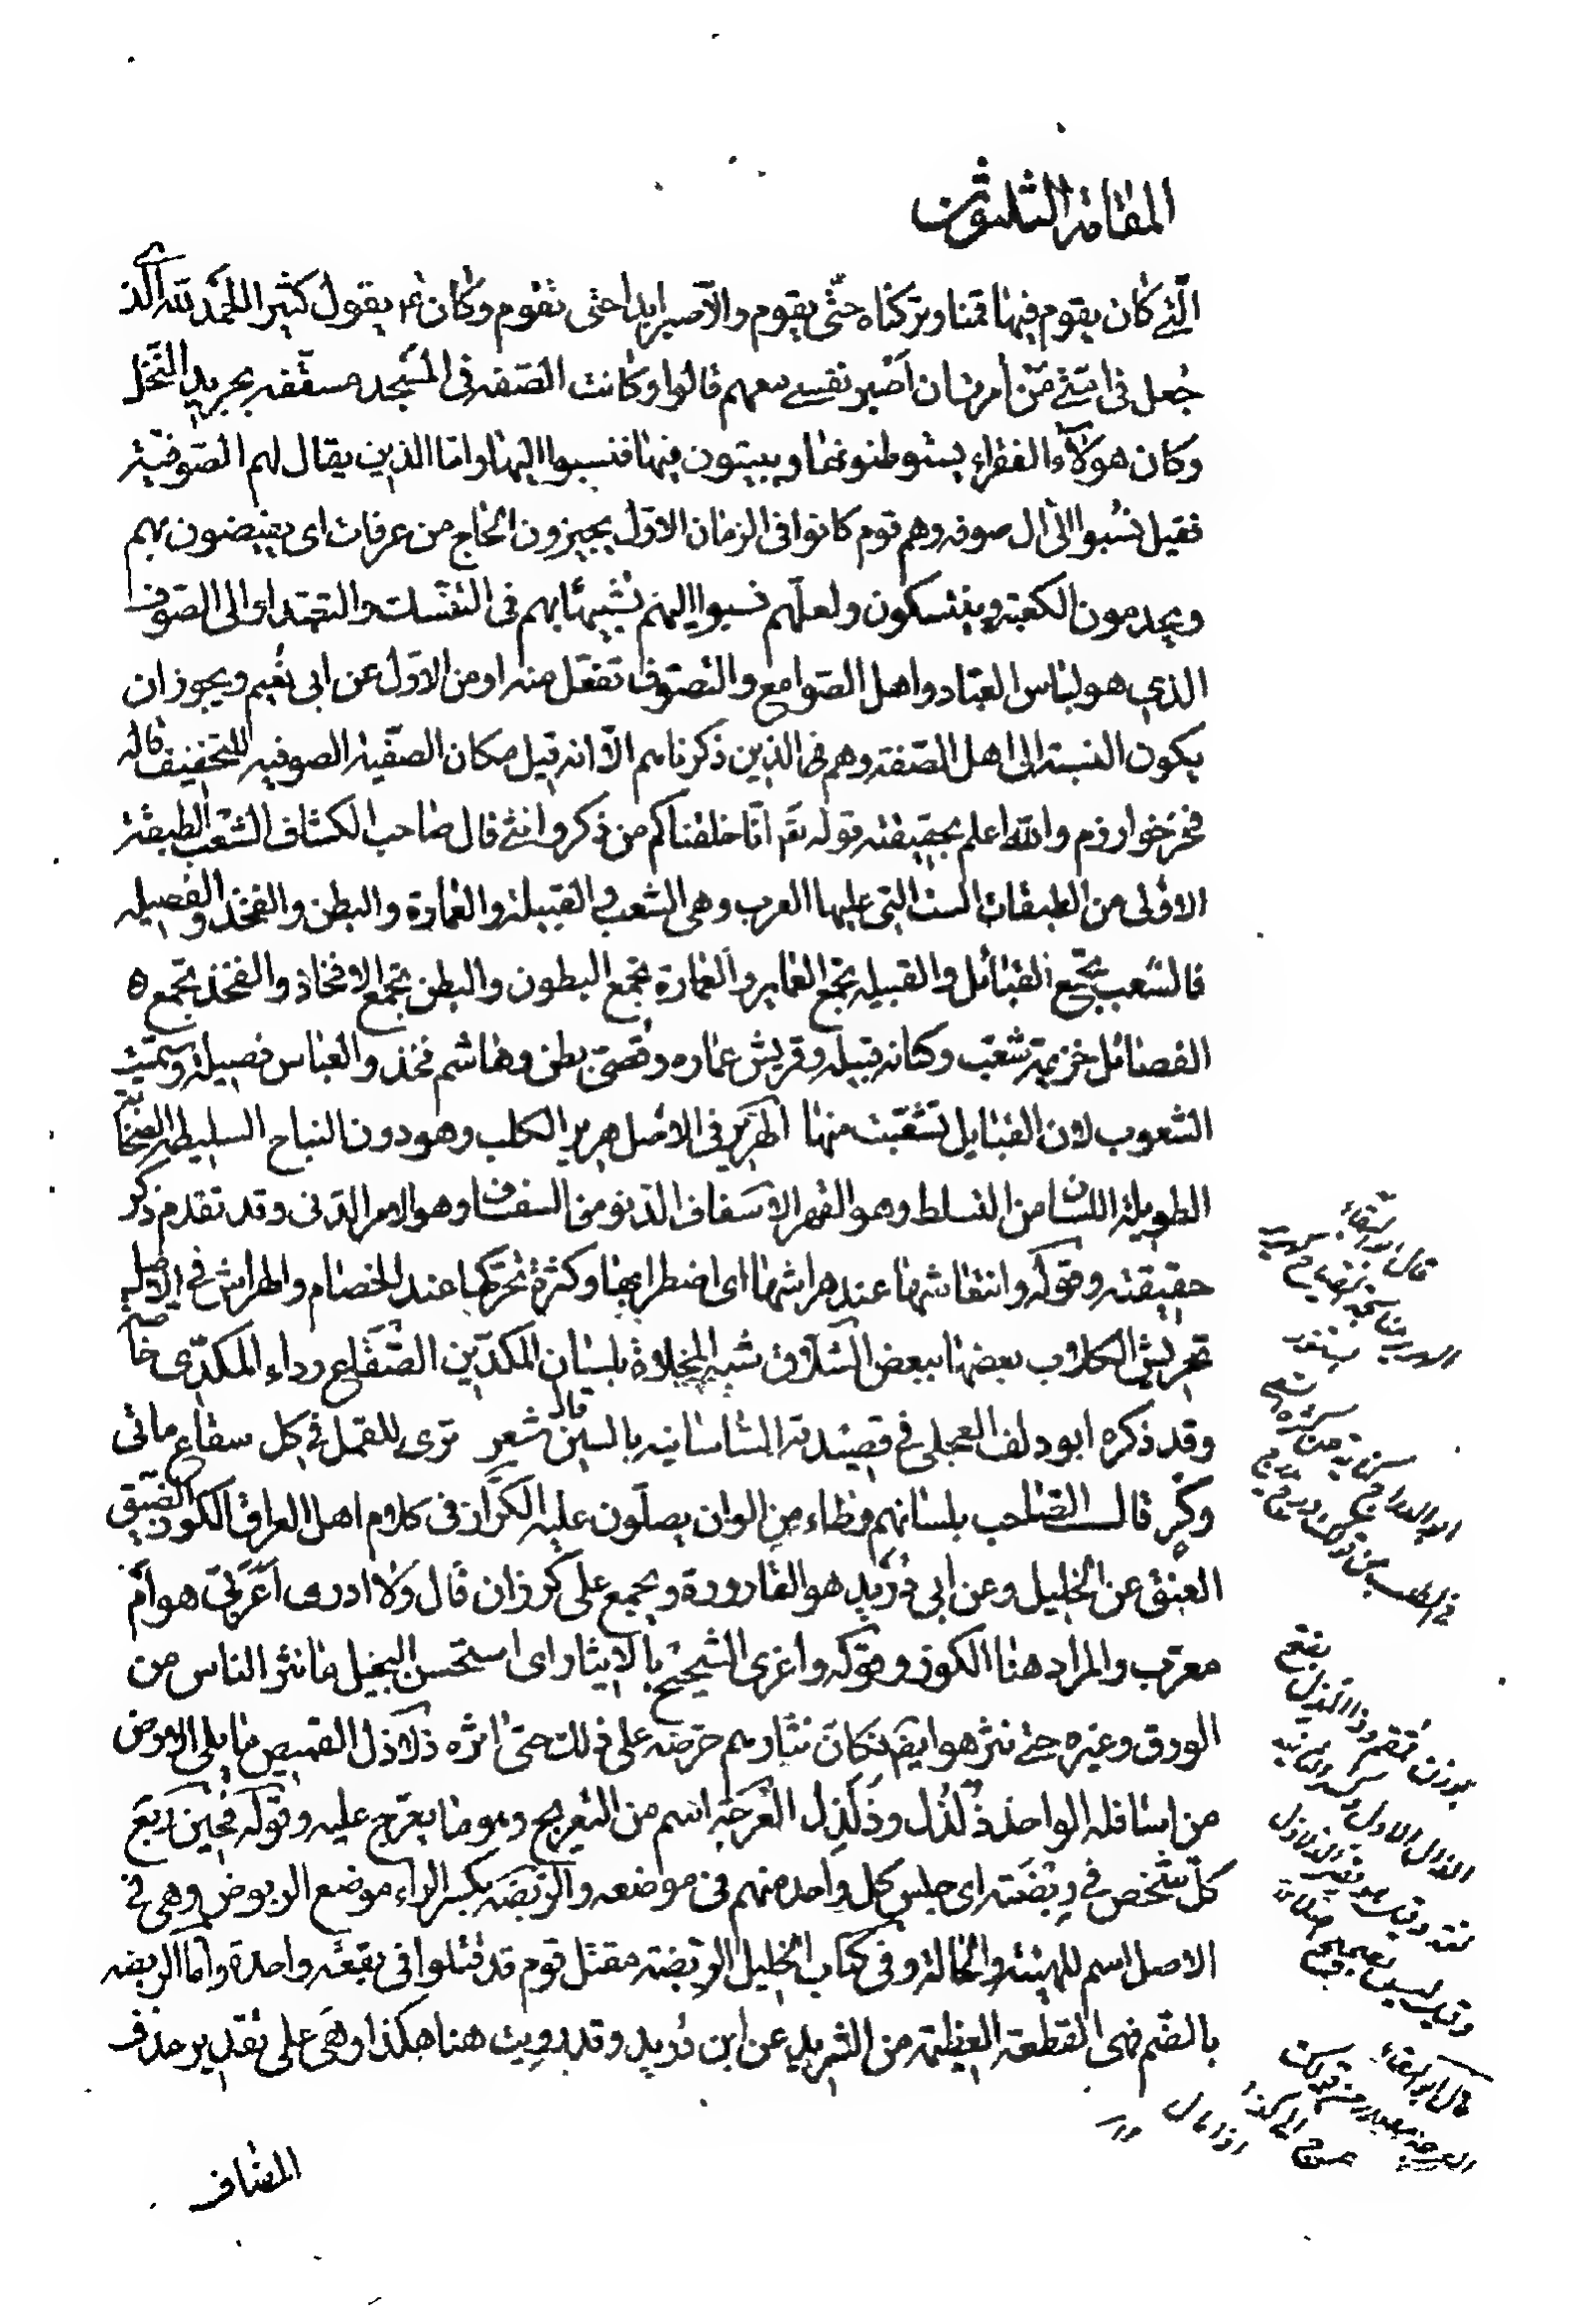 المقامة الثلثون
الّتي كان يقوم فيها قمنا وتركناه حتّى يقوم والّا صبر ابدا حتى نقوم وكان ع م يقول كثيرا الحمد لله الّذي
جعل في امّتي مَن اُمرت ان اَصبر نفسي معهم قالوا وكانت الصّفة في المسجد مسقّفه بجريد النّخل
وكان هولآء الفقراء يستوطنونها ويبيتون فيها فنسبوا اليها واما الذين يقال لهم الصّوفيّة
فقيل نُسبوا الى ال صوفه وهم قوم كانوا في الزمان الاوّل يجيزون الحاج من عرفات اى يفيضون بهم
ويخدمون الكعبة ويتنسكون ولعلّهم نسبوا اليهم تشبيها بهم في التنسّك والتعبّد او الى الصّوف
الذي هو لباس العبّاد واهل الصّوامع والتصوّف تفعّل منه او من الاوّل عن ابى نُعيم ويجوز ان
يكون النسبة الى اهل الصّفة وهم الذين ذكرناهم الّا انه قيل مكان الصفّية الصوفيه للتخفيف قاله
فخر خوارزم والله اعلم بحقيقته قوله تعَ انّا خلقناكم من ذكر وانثى قال صاحب الكشّاف الشَّعب الطبقة
الاولى من الطبقات الست التي عليها العرب وهى الشعب والقبيلة والعمارة والبطن والفخذ والفصيله
فالشعب يجمع القبائل والقبيلة تجمع العماير والعمارة تجمع البطون والبطن تجمع الافخاذ والفخذ تجمع
الفصائل خزيمة شعب وكنانه قبيله وقريش عماره وقصىّ بطن وهاشم فخذ والعباس فصيلة وسمّيت
الشعوب لان القبايل تشعّبت منها الهَرير في الاصل هرير الكلب وهو دون النباح السليطه الصخّابة
الطويلة اللسان من التسلط وهو القهر الاسفاف الدّنو من السفساف وهو الامر الدّنى وقد تقدم ذكر
حقيقته وقوله وانتقاشها عند هراشها اى اضطرابها وكثرة تحركها عند الخصام والهراش في الاصل
تحريش الكلاب بعضها ببعض الشّلّاق شبه المخلاة بلسان المكدّين الصّقّاع رداء المكدّى خاصّة
وقد ذكره ابو دلف العجلى في قصيدته الساسانيه بالسين قال شعر ترى للقمل في كل سقاع مائى
وكْر قالـــ الصّاحب بلسانهم وطاء من الوان يصلّون عليه الكَرّاز في كلام اهل العراق الكوز الضّيّق
العنق عن الخليل وعن ابي دُرَيد هو القارورة ويجمع على كرزان قال ولا ادرى اَعَربىّ هو اَم
معرّب والمراد هنا الكوز وقوله واغرى الشحيح بالايثار اى استحسن البخيل ما نثر الناس من
الورق وغيره حتى نثر هو ايضا فكانّ نثارهم حرّضه على ذلك حتى اثره ذلاذل القميص ما يلى الارض
من اسافله الواحد ذُلْذُل وذَلَذِل العُرجَة اسم من التعريج وهو ما يعرّج عليه وقوله فحين ربَعَ
كلّ شخص في رِبْضَته اى جلس كل واحد منهم في موضعه والرّبضَه بكسر الراء موضع الربوض وهى في
الاصل اسم للهيئة والحالة وفي كتاب الخليل الرِبضة مقتل قوم قد قُتلوا في بقعة واحدة وامّا الرُبضه
بالضّم فهى القطعة العظيمة من الثريد عن ابن دُريد وقد رويت هنا هكذا وهى على تقدير حذف
المضاف